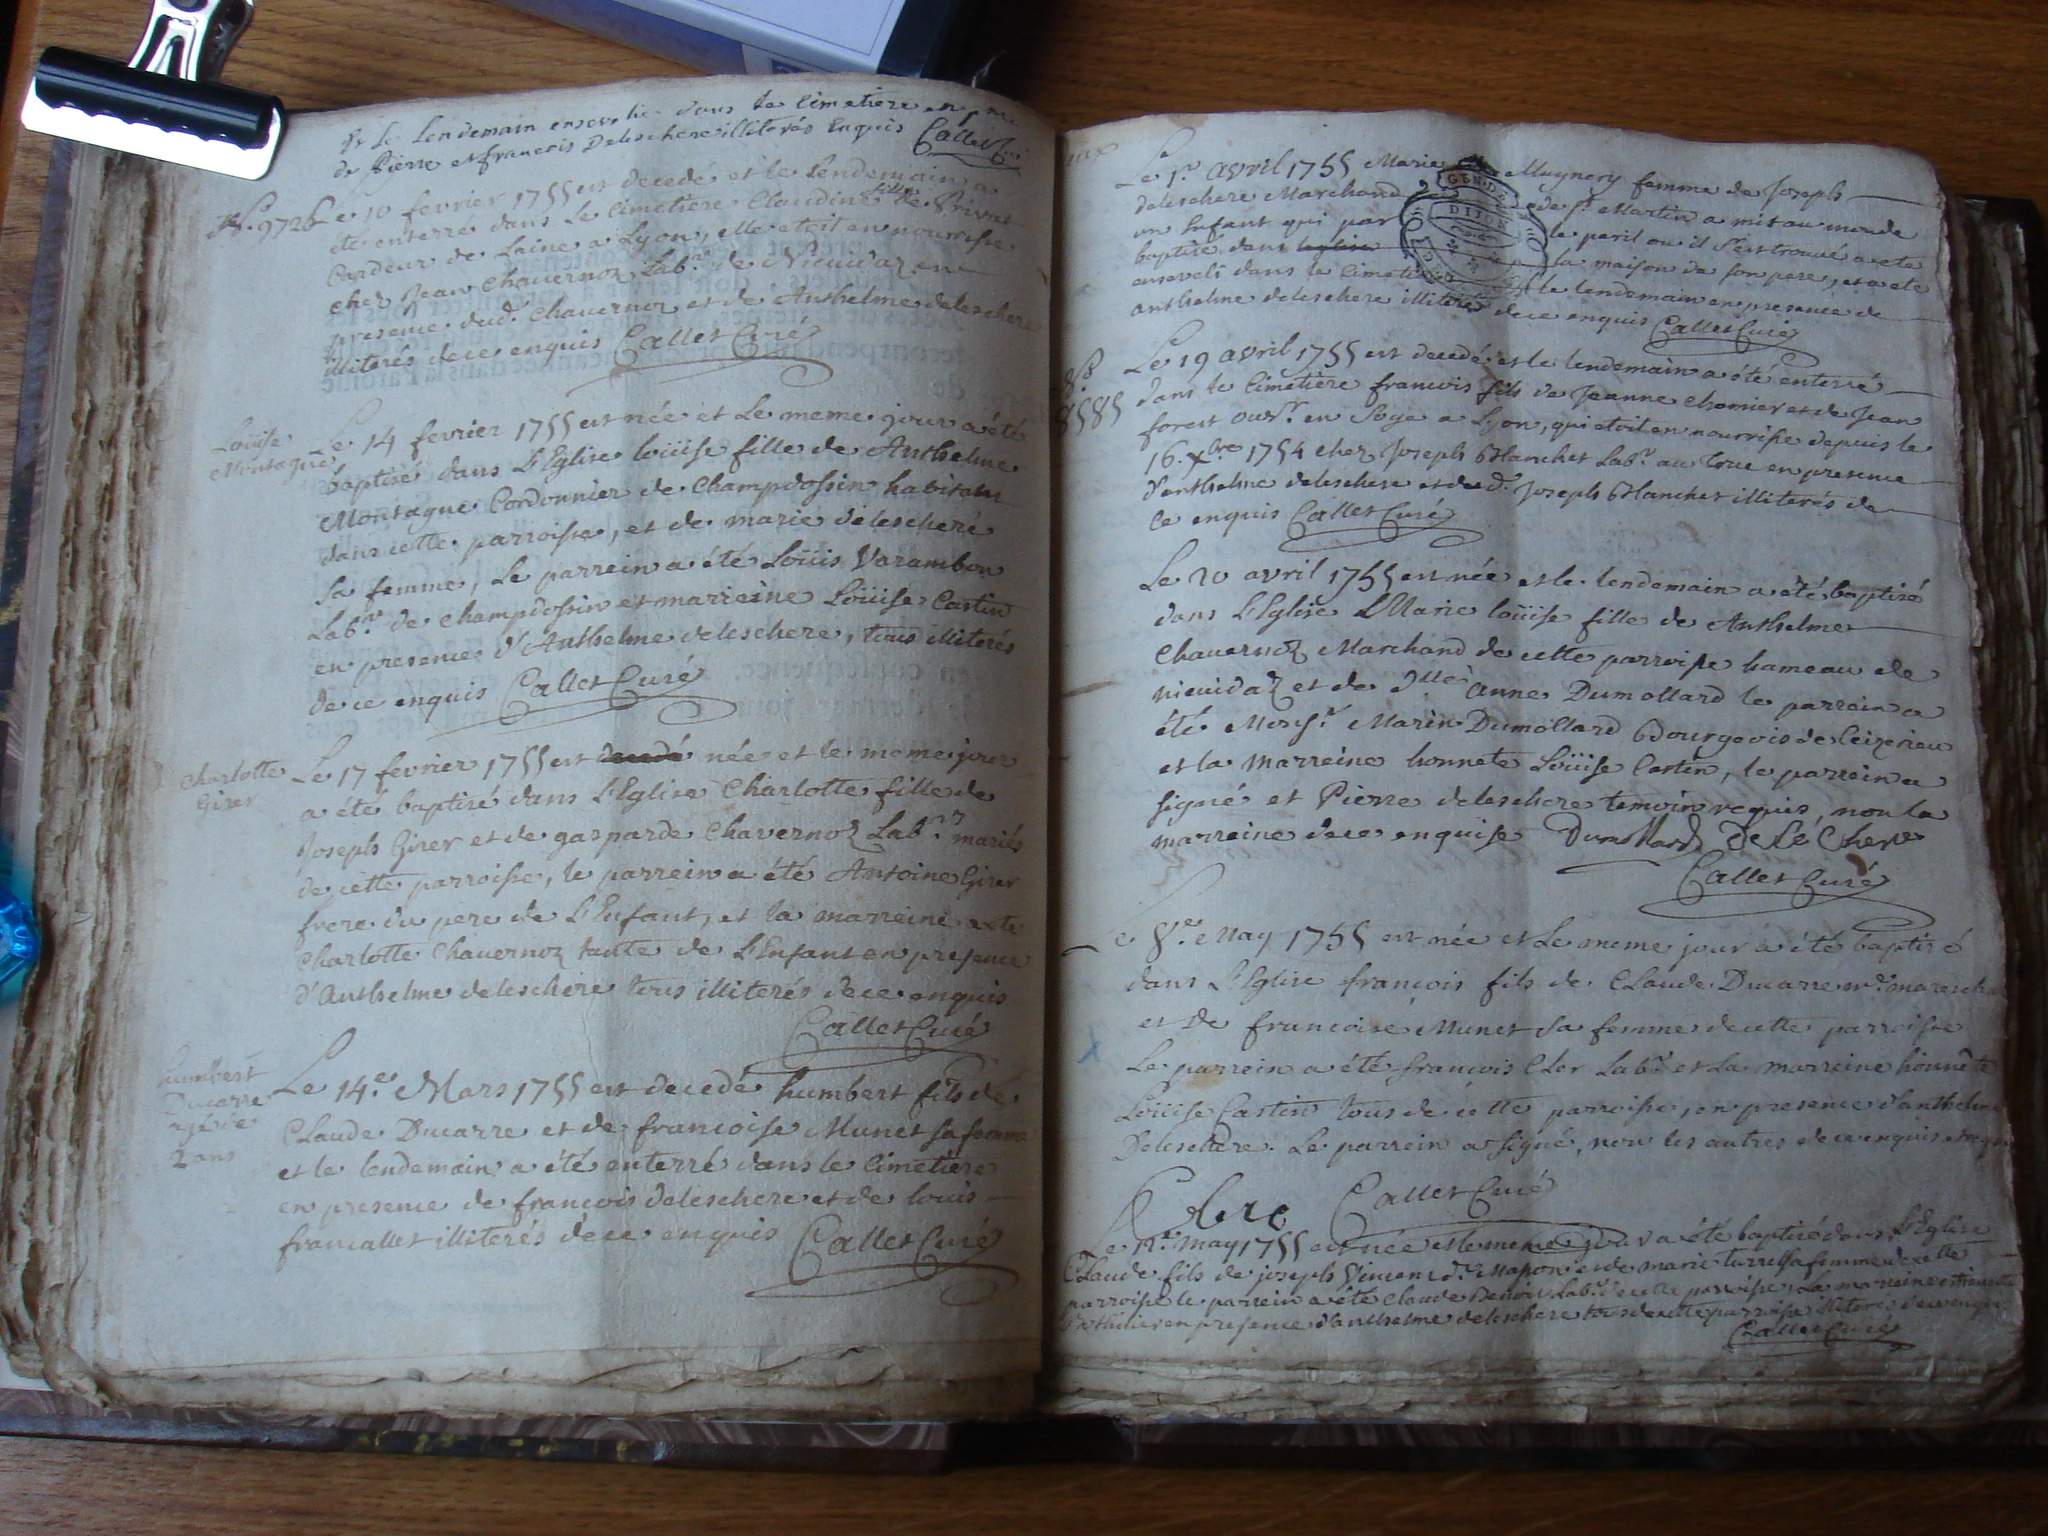 et le lendemain enseveli dans le cimetiere en
de Pierre et francois Deleschere illiterés Enquis Callet
Le 10 fevrier 1755 est decedé et le Lendemain a
été enterré dans Le Cimetiere Claudine fille de Privat
Cardeur de Laine a Lyon, elle etoit en nourrisse
chez Jean Chavernoz Labr. de Vieuidaz en
presence dud. Chavernoz et de Anthelme deleschere
illiterés de ce enquis Callet Curé
Loüise
Montagne
Le 14 fevrier 1755 est née et Le meme jour a été
baptisé dans L'Eglise loüise fille de Anthelme
Montagne Cordonnier de Champdossin habitant
dans cette parroisse, et de marie deleschere
Sa femme, Le parrein a été Loüis Varambon
Labr. de Champdossin et marreine Loüise Castin
en presence d'Anthelme deleschere, tous illiterés
de ce enquis Callet Curé
Charlotte
Girer
Le 17 fevrier 1755 est decedé née et le meme jour
a été baptisé dans L'Eglise Charlotte fille de
Joseph Girer et de gasparde Chavernoz Labrs. mariés
de cette parroisse, le parrein a été Antoine Girer
frere du pere de L'Enfant, et la marreine a été
Charlotte Chavernoz tante de L'Enfant en presence
d'Anthelme deleschere tous illiterés de ce enquis
Callet Curé
humbert
Ducarre
agé de
2 ans
Le 14e. Mars 1755 est decedé humbert fils de
Claude Ducarre et de francoise Munet sa femme
et le lendemain a été enterré dans le Cimetiere
en presence de francois deleschere et de louis
francallet illiterés de ce enquis Callet Curé
Le 1er. avril 1755 Marie Muynery femme de Joseph
deleschere Marchand de st. Martin a mis au monde
un Enfant qui par le peril ou il s'est trouvé a été
baptisé dans leglise la maison de son pere, et a été
enseveli dans le Cimetiere le lendemain en presence de
anthelme deleschere illiteré de ce enquis Callet Curé
DIJON
8585
Le 19 avril 1755 est decedé et le lendemain a été enterré
dans le Cimetière francois fils de Jeanne Chomier et de Jean
forest ouvr. en Soye a Lyon, qui etoit en nourrisse depuis le
16. xbre 1754 chez Joseph Blanchet Labr. au Truc en presence
d'anthelme deleschere et dud. Joseph Blanchet illiterés de
ce enquis Callet Curé
Le 20 avril 1755 est née et le lendemain a été baptisé
dans L'Eglise Marie loüise fille de Anthelme
Chavernoz Marchand de cette parroisse hameau de
vieuidaz et de dlle anne Dumollard le parrein a
été Monsr. Marin Dumollard Bourgeois de Ceizerieu
et la marreine honnete Loüise Castin, le parrein a
signé et Pierre deleschere temoin requis, non la
marreine de ce enquise Dumollard De Lé Chere
Callet Curé
Le 8e. May 1755 est née et Le meme jour a été baptisé
dans L'Eglise françois fils de Claude Ducarre me. marescha
et de francoise Munet sa femme de cette parroisse
Le parrein a été francois Cler Labr. et La marreine honnete
Loüise Castin tous de cette parroisse, en presence d'anthelme
Deleschere. Le parrein a signé, non les autres de ce enquis
Callet Curé
Le 12e. may 1755 est née et le meme jour a été baptisé dans L'Eglise
Claude fils de joseph Vincent et de marie sa femme de cette
parroisse le parrein a été Claude Labr. de cette parroisse, La marreine
en presence d'anthelme deleschere tous de cette parroisse illiterés de ce enquis
Callet Curé